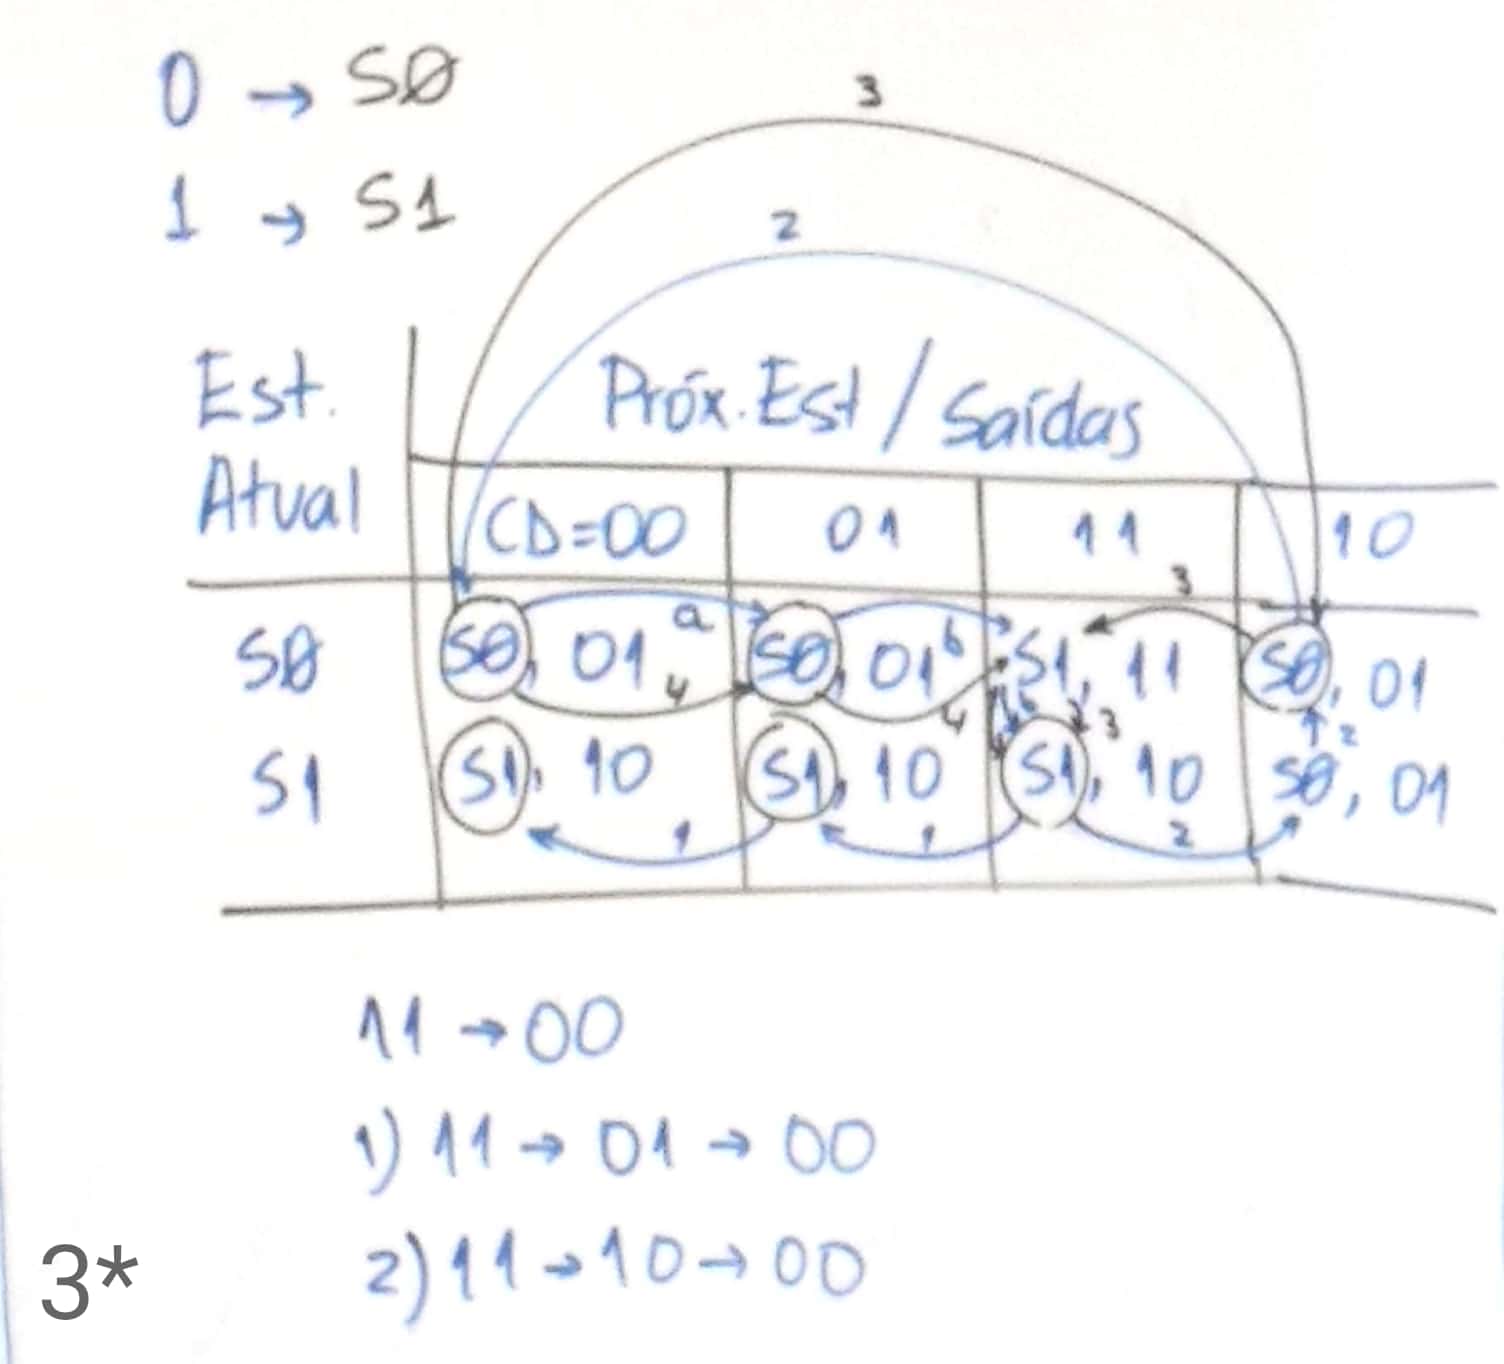 0 → SØ
1 → S1
3
2
Est. Atual
Próx. Est / Saídas
CD=00 01 11 10
3
SØ SØ, 01 a SØ, 01 b S1, 11 SØ, 01
4 4 b 3 2
S1 S1, 10 S1, 10 S1, 10 SØ, 01
1 1 2
11 → 00
1) 11 → 01 → 00
2) 11 → 10 → 00
3*